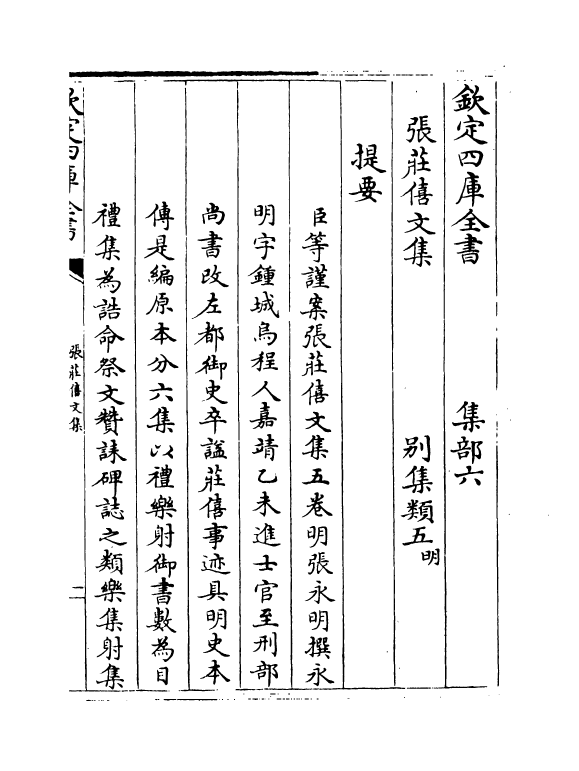 欽定四庫全書　集部六
張莊僖文集　別集類五明
提要
臣等謹案張莊僖文集五卷明張永明撰永
明字鍾城烏程人嘉靖乙未進士官至刑部
尚書改左都御史卒諡莊僖事迹具明史本
傳是編原本分六集以禮樂射御書數為目
禮集為誥命祭文贊誄碑誌之類樂集射集
欽定四庫全書
張莊僖文集
二